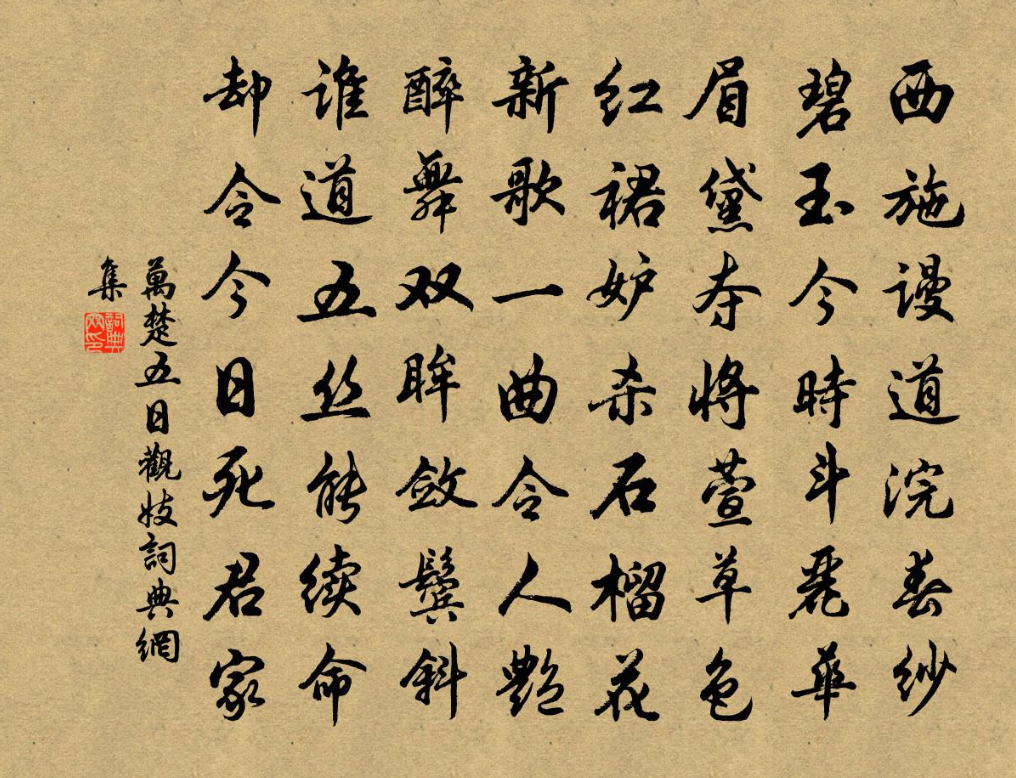 西施谩道浣春纱
碧玉今時斗麗華
眉黛夺将萱草色
红裙妒杀石榴花
新歌一曲令人艷
醉舞双眸敛鬓斜
谁道五丝能续命
却令今日死君家
萬楚五日觀妓詞典網
集
詞典